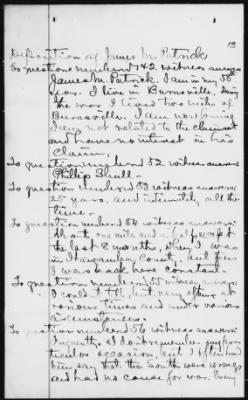 13
Deposition of James M. Patrick
To questions numbered 1 & 2 witness answers
James M. Patrick. I am in my 58th
year. I live in Burnsville, During
the war I lived two miles of
Burnsville. I am now farming
I am not related to the claimant
and have no interest in his
claim.
To question numbered 52 witness answers
Phillip Shull.
To question numbered 53 witness answers:
25 years, and intimately, all the
time.
To question numbered 54 witness answers:
About one mile and a half except
the last 8 months, when I was
in Itawamba County, but then
I was back here constant.
To question numbered 55 witness answers
I couldn't tell, but very often, at
various times and under various
circumstances.
To question numbered 56 witness answers:
Frequently, I don't remember any par-
ticular occasion, but I often heard
him say that the South were wrong
and had no cause for war. Every